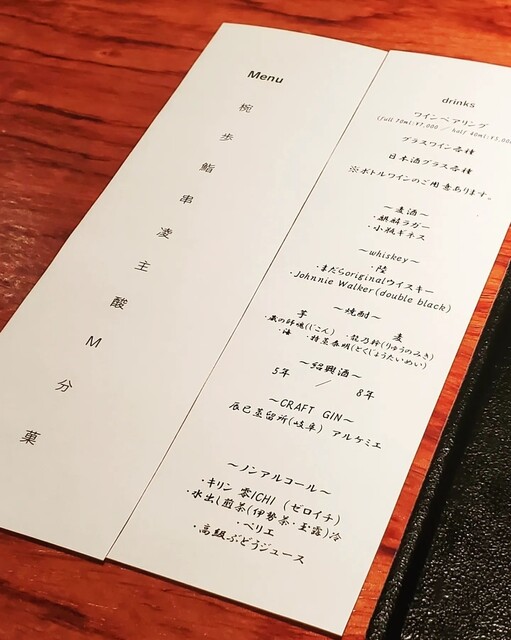 Menu
椀
歩
鮨
串
凌
主
酸
M
分
菓
drinks
ワインペアリング
(full 70ml:¥7,000 / half 40ml:¥5,000
グラスワイン各種
日本酒グラス各種
※ボトルワインのご用意あります。
〜麦酒〜
・麒麟ラガー
・小瓶ギネス
〜whiskey〜
・陸
・まだらoriginalウイスキー
・Johnnie Walker(double black)
〜焼酎〜
芋 麦
・蔵の師魂(じこん) ・龍乃幹(りゅうのみき)
・海 ・特蒸泰明(とくじょうたいめい)
〜紹興酒〜
5年 / 8年
〜CRAFT GIN〜
辰巳蒸留所(岐阜) アルケミエ
〜ノンアルコール〜
・キリン 零ICHI (ゼロイチ)
・水出し煎茶(伊勢茶・玉露)冷
・ペリエ
・高級ぶどうジュース